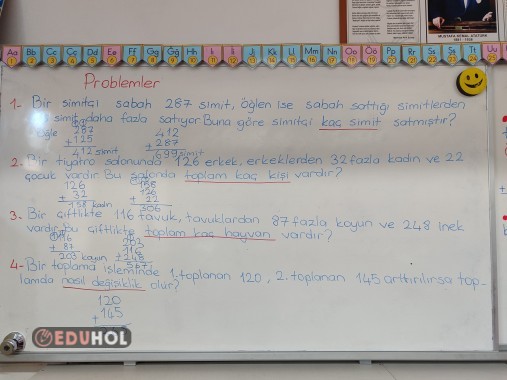 MUSTAFA KEMAL ATATÜRK
1881 - 1938
Aa Bb Cc Çç Dd Ee Ff Gg Ğğ Hh Iı İi Jj Kk Ll Mm Nn Oo Öö Pp Rr Ss Şş Tt Uu
Problemler
1- Bir simitçi sabah 287 simit, öğlen ise sabah sattığı simitlerden
simit daha fazla satıyor. Buna göre simitçi kaç simit satmıştır?
öğle 287 412
+125 + 287
412 simit 699 simit
2. Bir tiyatro salonunda 126 erkek, erkeklerden 32 fazla kadın ve 22
çocuk vardır. Bu salonda toplam kaç kişi vardır?
126 158
+ 32 126
158 kadın + 22
306
3. Bir çiftlikte 116 tavuk, tavuklardan 87 fazla koyun ve 248 inek
vardır. Bu çiftlikte toplam kaç hayvan vardır?
116 203
+ 87 116
203 koyun +248
567
4- Bir toplama işleminde 1. toplanan 120, 2. toplanan 145 arttırılırsa top-
lamda nasıl değişiklik olur?
120
+145
EDUHOL